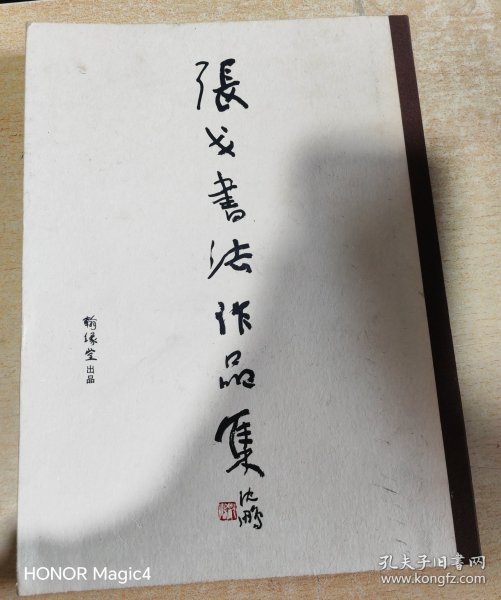 張戈書法作品集
沈鵬
翰缘堂出品
HONOR Magic4
孔夫子旧书网
www.kongfz.com